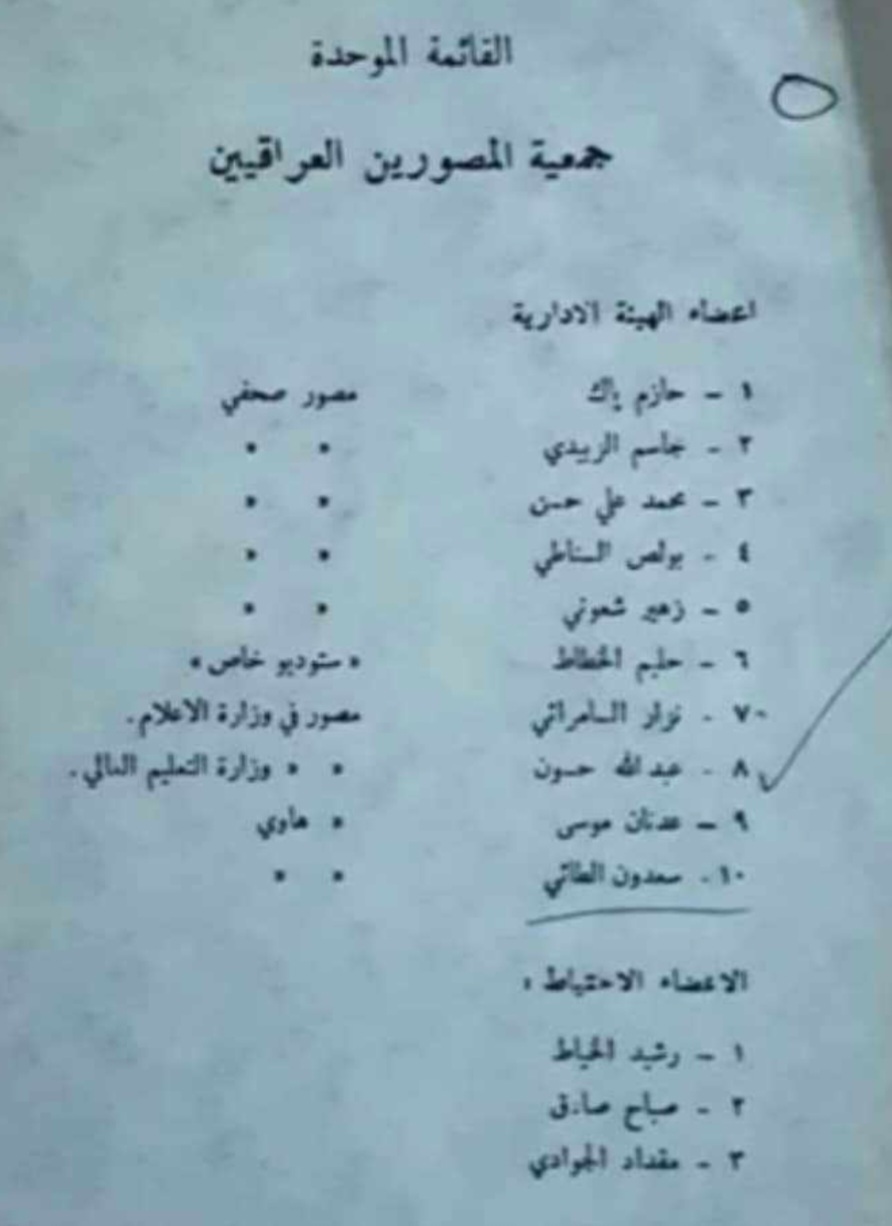 القائمة الموحدة
جمعية المصورين العراقيين
اعضاء الهيئة الادارية
١ - حازم باك مصور صحفي
٢ - جاسم الزبيدي » »
٣ - محمد علي حسن » »
٤ - بولص السناطي » »
٥ - زهير شعوني » »
٦ - حليم الخطاط «ستوديو خاص»
٧ - نزار السامرائي مصور في وزارة الاعلام.
٨ - عبد الله حسون » » وزارة التعليم العالي.
٩ - عدنان موسى » هاوي
١٠ - سعدون الطائي » »
الاعضاء الاحتياط :
١ - رشيد الخياط
٢ - صباح صادق
٣ - مقداد الجوادي